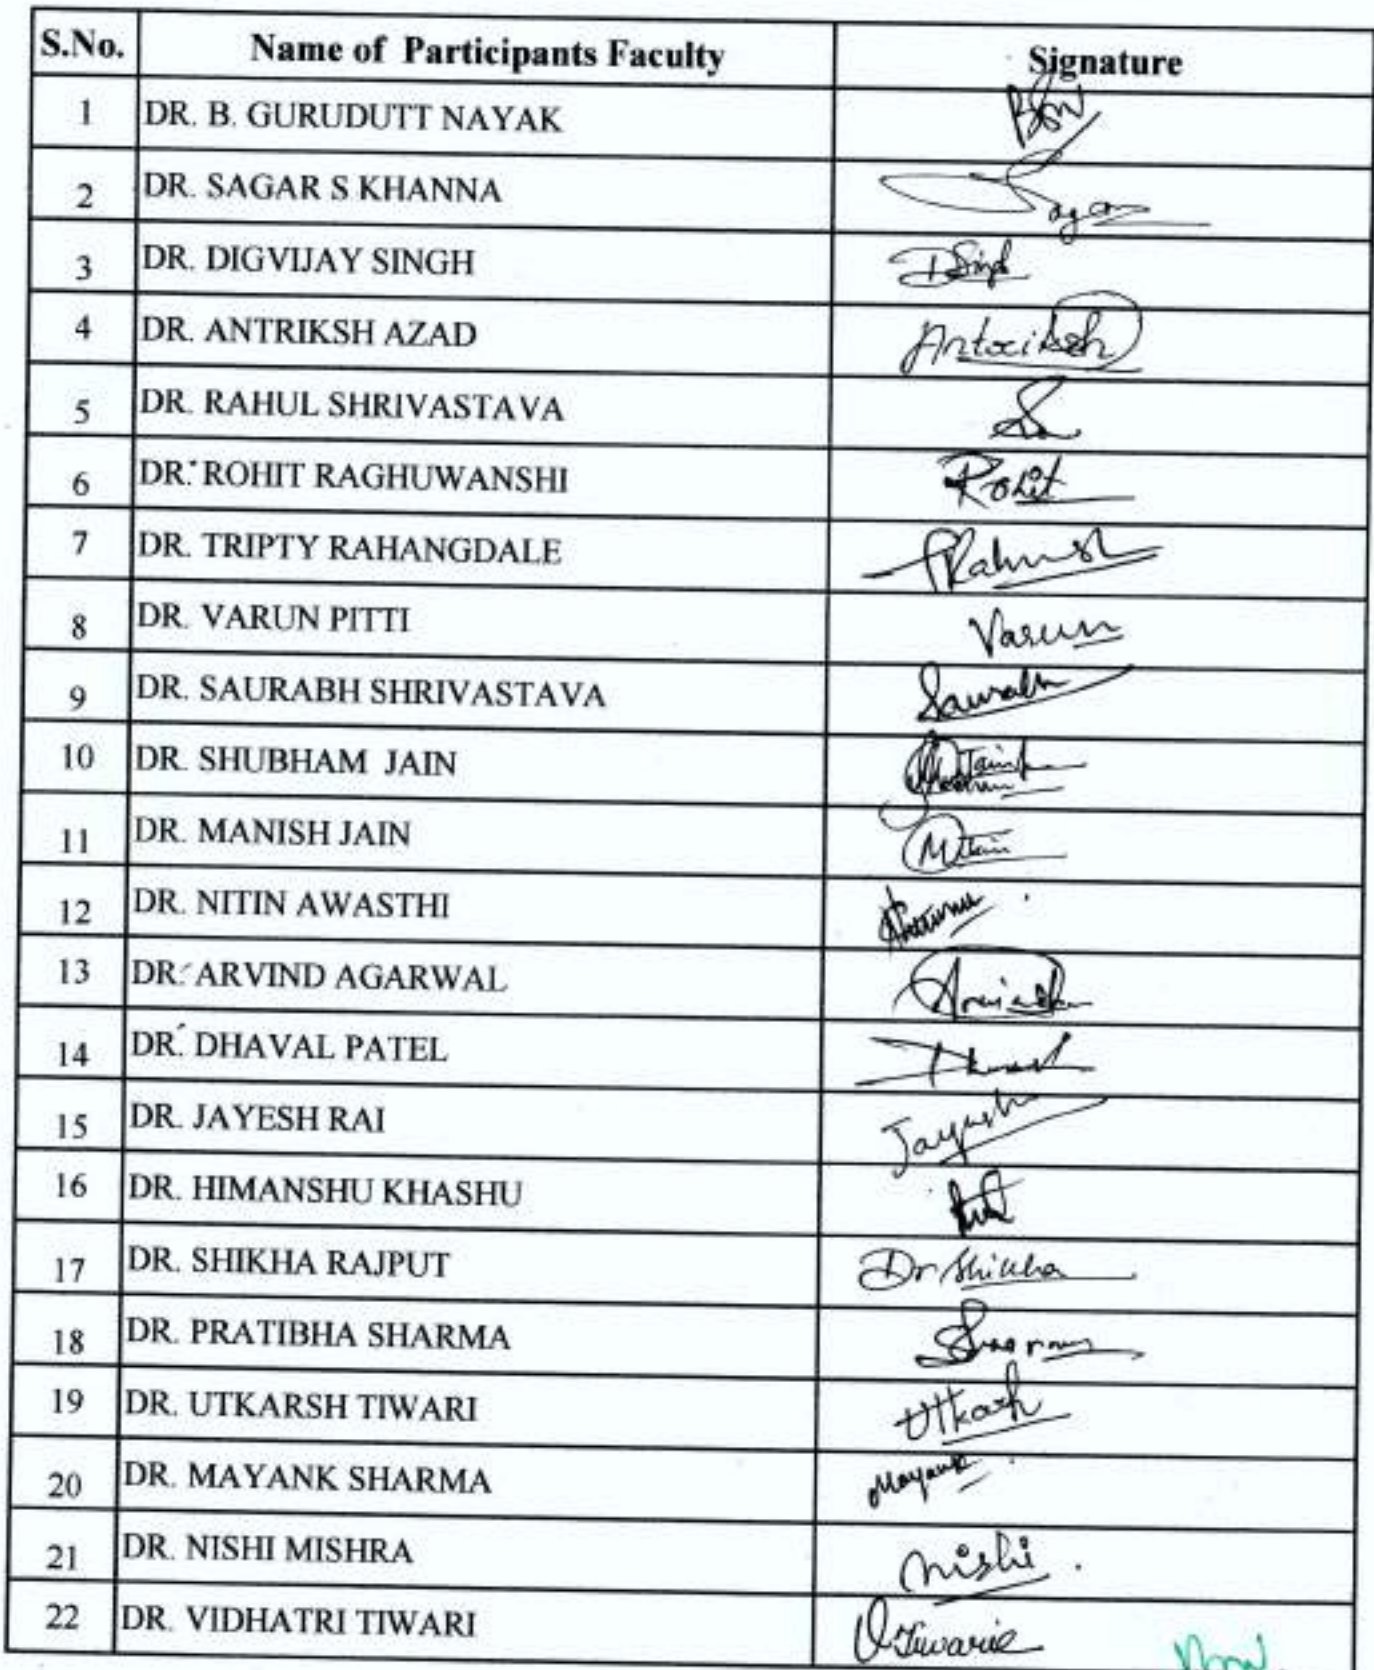 S.No. Name of Participants Faculty Signature
1 DR. B. GURUDUTT NAYAK
2 DR. SAGAR S KHANNA Sagar
3 DR. DIGVIJAY SINGH DSingh
4 DR. ANTRIKSH AZAD Antriksh
5 DR. RAHUL SHRIVASTAVA
6 DR. ROHIT RAGHUWANSHI Rohit
7 DR. TRIPTY RAHANGDALE
8 DR. VARUN PITTI Varun
9 DR. SAURABH SHRIVASTAVA Saurabh
10 DR. SHUBHAM JAIN
11 DR. MANISH JAIN MJain
12 DR. NITIN AWASTHI
13 DR. ARVIND AGARWAL
14 DR. DHAVAL PATEL
15 DR. JAYESH RAI Jayesh
16 DR. HIMANSHU KHASHU
17 DR. SHIKHA RAJPUT Dr Shikha
18 DR. PRATIBHA SHARMA Sharma
19 DR. UTKARSH TIWARI Utkarsh
20 DR. MAYANK SHARMA Mayank
21 DR. NISHI MISHRA Nishi
22 DR. VIDHATRI TIWARI